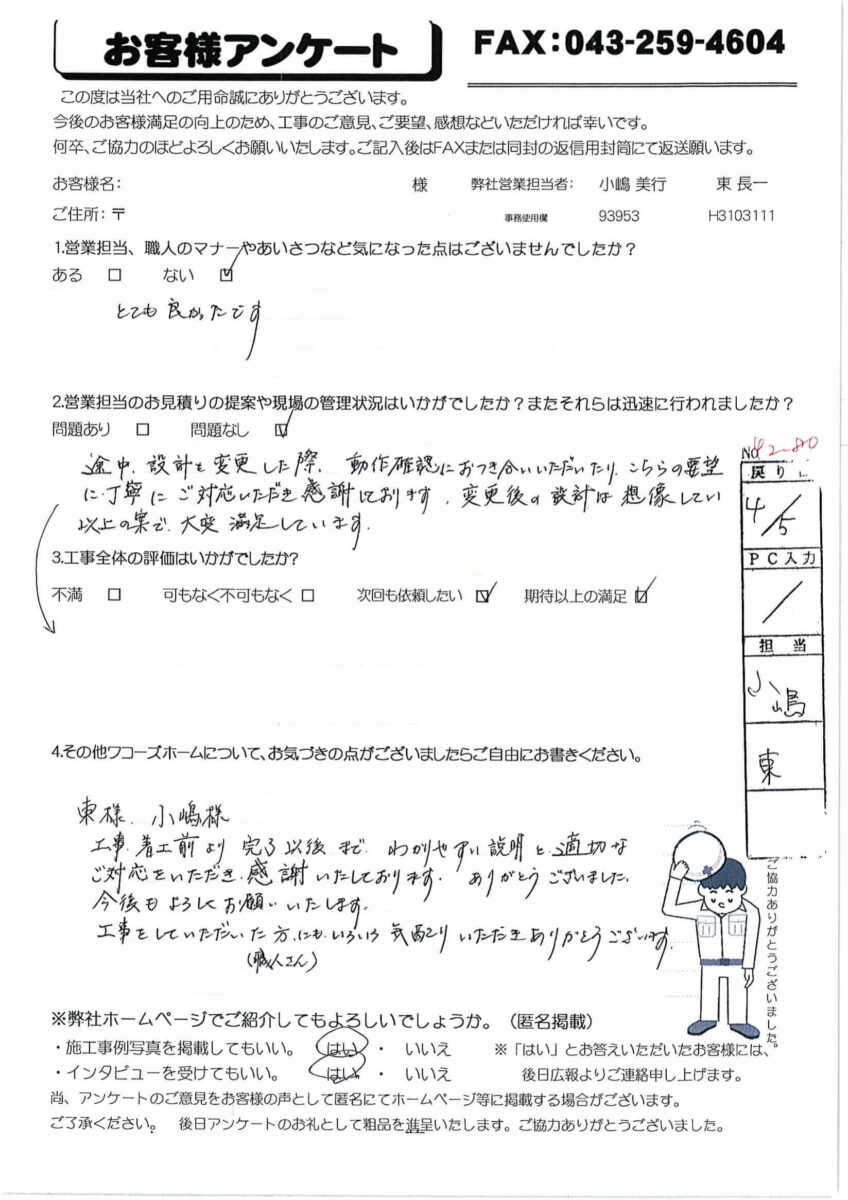 お客様アンケート
FAX:043-259-4604
この度は当社へのご用命誠にありがとうございます。
今後のお客様満足の向上のため、工事のご意見、ご要望、感想などいただければ幸いです。
何卒、ご協力のほどよろしくお願いいたします。ご記入後はFAXまたは同封の返信用封筒にて返送願います。
お客様名: 様 弊社営業担当者: 小嶋 美行 東 長一
ご住所:〒 事務使用欄 93953 H3103111
1.営業担当、職人のマナーやあいさつなど気になった点はございませんでしたか?
ある □ ない ☑
とても良かったです
2.営業担当のお見積りの提案や現場の管理状況はいかがでしたか?またそれらは迅速に行われましたか?
問題あり □ 問題なし ☑
途中、設計を変更した際、動作確認におつき合いいただいたり、こちらの要望
に丁寧にご対応いただき感謝しております。変更後の設計は想像してい
以上の案で、大変満足しています。
3.工事全体の評価はいかがでしたか?
不満 □ 可もなく不可もなく □ 次回も依頼したい ☑ 期待以上の満足 ☑
No 42-80
戻り
4/5
PC入力
/
担当
小嶋
東
4.その他ワコーズホームについて、お気づきの点がございましたらご自由にお書きください。
東様、小嶋様
工事着工前より完了以後まで、わかりやすい説明と適切な
ご対応をいただき、感謝いたしております。ありがとうございました。
今後もよろしくお願いいたします。
工事をしていただいた方にも、いろいろ気配りいただきありがとうございます。
(職人さん)
ご協力ありがとうございました。
※弊社ホームページでご紹介してもよろしいでしょうか。(匿名掲載)
・施工事例写真を掲載してもいい。 はい ・ いいえ ※「はい」とお答えいただいたお客様には、
・インタビューを受けてもいい。 はい ・ いいえ 後日広報よりご連絡申し上げます。
尚、アンケートのご意見をお客様の声として匿名にてホームページ等に掲載する場合がございます。
ご了承ください。 後日アンケートのお礼として粗品を進呈いたします。ご協力ありがとうございました。